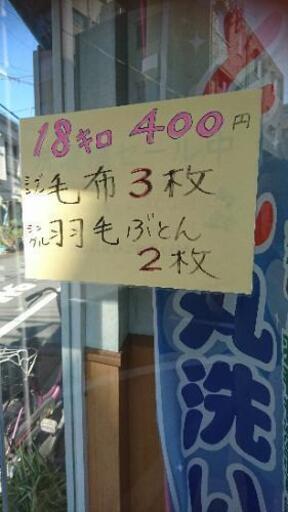 18キロ 400円
シングル毛布3枚
シングル羽毛ぶとん
2枚
丸洗い